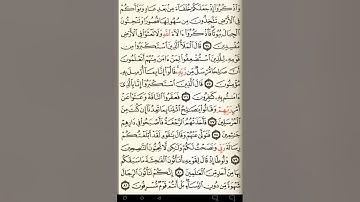 وَٱذۡكُرُوٓاْ إِذۡ جَعَلَكُمۡ خُلَفَآءَ مِنۢ بَعۡدِ عَادٖ وَبَوَّأَكُمۡ
فِي ٱلۡأَرۡضِ تَتَّخِذُونَ مِن سُهُولِهَا قُصُورٗا وَتَنۡحِتُونَ
ٱلۡجِبَالَ بُيُوتٗاۖ فَٱذۡكُرُوٓاْ ءَالَآءَ ٱللَّهِ وَلَا تَعۡثَوۡاْ فِي ٱلۡأَرۡضِ
مُفۡسِدِينَ ٧٤ قَالَ ٱلۡمَلَأُ ٱلَّذِينَ ٱسۡتَكۡبَرُواْ مِن
قَوۡمِهِۦ لِلَّذِينَ ٱسۡتُضۡعِفُواْ لِمَنۡ ءَامَنَ مِنۡهُمۡ أَتَعۡلَمُونَ
أَنَّ صَٰلِحٗا مُّرۡسَلٞ مِّن رَّبِّهِۦۚ قَالُوٓاْ إِنَّا بِمَآ أُرۡسِلَ بِهِۦ
مُؤۡمِنُونَ ٧٥ قَالَ ٱلَّذِينَ ٱسۡتَكۡبَرُوٓاْ إِنَّا بِٱلَّذِيٓ
ءَامَنتُم بِهِۦ كَٰفِرُونَ ٧٦ فَعَقَرُواْ ٱلنَّاقَةَ وَعَتَوۡاْ عَنۡ
أَمۡرِ رَبِّهِمۡ وَقَالُواْ يَٰصَٰلِحُ ٱئۡتِنَا بِمَا تَعِدُنَآ إِن كُنتَ مِنَ
ٱلۡمُرۡسَلِينَ ٧٧ فَأَخَذَتۡهُمُ ٱلرَّجۡفَةُ فَأَصۡبَحُواْ فِي دَارِهِمۡ
جَٰثِمِينَ ٧٨ فَتَوَلَّىٰ عَنۡهُمۡ وَقَالَ يَٰقَوۡمِ لَقَدۡ أَبۡلَغۡتُكُمۡ
رِسَالَةَ رَبِّي وَنَصَحۡتُ لَكُمۡ وَلَٰكِن لَّا تُحِبُّونَ ٱلنَّٰصِحِينَ
٧٩ وَلُوطًا إِذۡ قَالَ لِقَوۡمِهِۦٓ أَتَأۡتُونَ ٱلۡفَٰحِشَةَ مَا سَبَقَكُم
بِهَا مِنۡ أَحَدٖ مِّنَ ٱلۡعَٰلَمِينَ ٨٠ إِنَّكُمۡ لَتَأۡتُونَ ٱلرِّجَالَ
شَهۡوَةٗ مِّن دُونِ ٱلنِّسَآءِۚ بَلۡ أَنتُمۡ قَوۡمٞ مُّسۡرِفُونَ ٨١